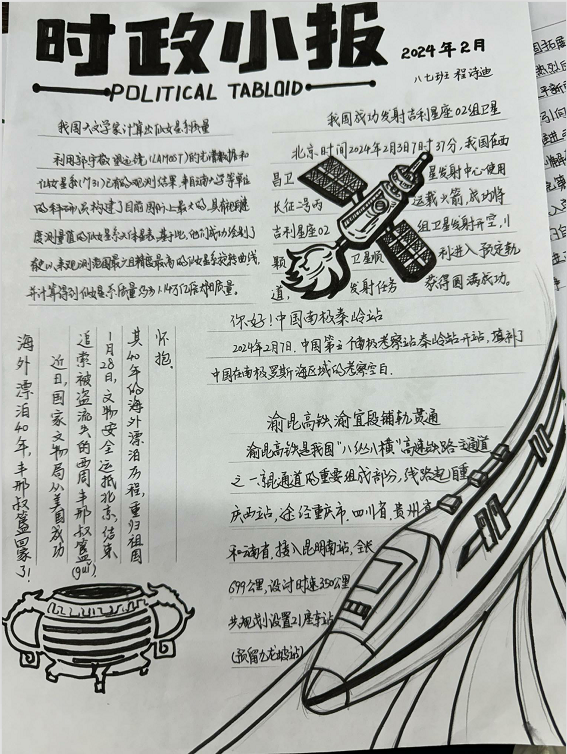 时政小报
2024年2月
POLITICAL TABLOID
八七班 程诗迪
我国天文学家计算出仙女星系质量
利用郭守敬望远镜(LAMOST)的光谱数据和
仙女星系(M31)已有的观测结果,
的科研人员构建了目前国际上最大的、具有视向速
度测量值的仙女星系天体星表。基于此,他们成功绘制了
精度最高的仙女星系旋转曲线,
并计算得到仙女星系质量约为1.14万亿倍太阳质量。
我国成功发射吉利星座02组卫星
北京时间2024年2月3日7时37分,我国在西
昌卫 星发射中心使用
长征二号丙 运载火箭,成功将
吉利星座02 组卫星发射升空,11
颗 卫星顺 利进入预定轨
道, 发射任务 获得圆满成功。
你好!中国南极秦岭站
2024年2月7日,中国第五个南极考察站秦岭站开站,填补了
中国在南极罗斯海区域的考察空白。
渝昆高铁渝宜段铺轨贯通
渝昆高铁是我国“八纵八横”高速铁路主通道
之一京昆通道的重要组成部分,线路起自重
庆西站,途经重庆市、四川省、贵州省
和云南省,接入昆明南站,全长
699公里,设计时速350公里
共规划设置21座车站
(预留九龙坡站)
海外漂泊40年,丰邢叔簋回家了!
近日,国家文物局从美国成功
追索被盗流失的西周丰邢叔簋(guǐ),
1月28日,文物安全运抵北京,结束
其40年的海外漂泊历程,重归祖国
怀抱。